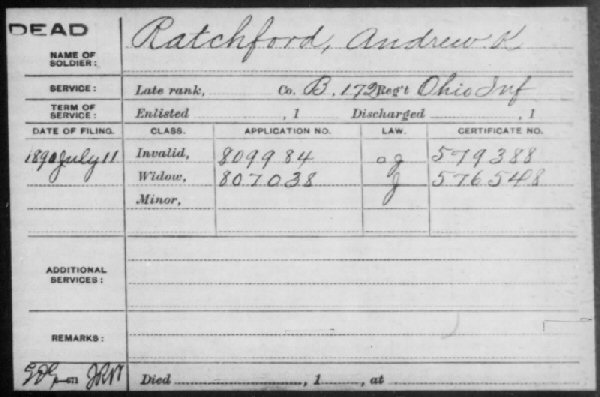 DEAD
NAME OF SOLDIER: Ratchford, Andrew K
SERVICE: Late rank, Co. B, 172 Reg't Ohio Inf
TERM OF SERVICE: Enlisted , 1 Discharged , 1
DATE OF FILING. CLASS. APPLICATION NO. LAW. CERTIFICATE NO.
1890 July 11 Invalid, 809984 g 579388
Widow, 807038 g 576548
Minor,
ADDITIONAL SERVICES:
REMARKS:
Died , 1 , at